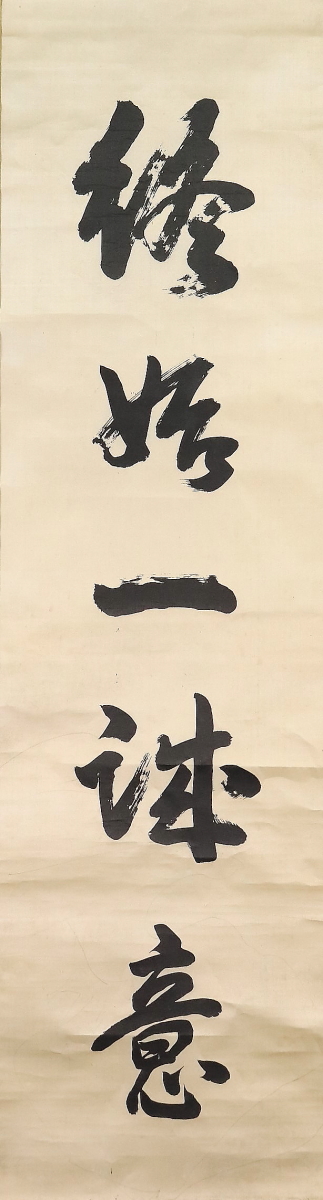 終始一誠意